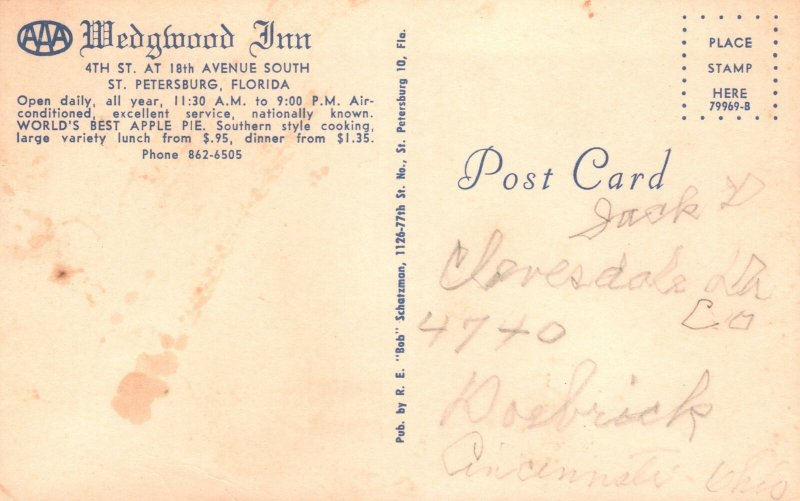 AAA Wedgwood Inn
4TH ST. AT 18th AVENUE SOUTH
ST. PETERSBURG, FLORIDA
Open daily, all year, 11:30 A.M. to 9:00 P.M. Air-
conditioned, excellent service, nationally known.
WORLD'S BEST APPLE PIE. Southern style cooking,
large variety lunch from $.95, dinner from $1.35.
Phone 862-6505
Pub. by R. E. "Bob" Schatzman, 1126-77th St. No., St. Petersburg 10, Fla.
PLACE
STAMP
HERE
79969-B
Post Card
Jack
Co
Cincinnati Ohio